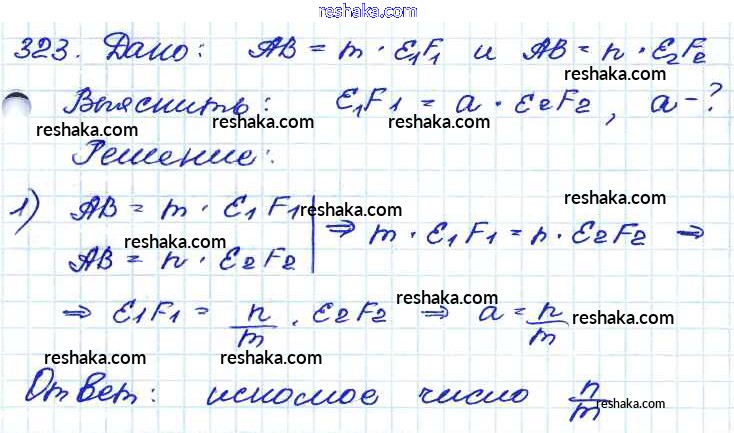 reshaka.com
323. Дано: AB = m · E₁F₁ и AB = n · E₂F₂
reshaka.com
Выяснить: E₁F₁ = a · E₂F₂, a - ?
reshaka.com reshaka.com reshaka.com reshaka.com
Решение:
1) AB = m · E₁F₁ | ⇒ m · E₁F₁ = n · E₂F₂ ⇒
reshaka.com
AB = n · E₂F₂
reshaka.com
⇒ E₁F₁ = n/m · E₂F₂ ⇒ a = n/m
reshaka.com reshaka.com
reshaka.com reshaka.com
Ответ: искомое число n/m
reshaka.com